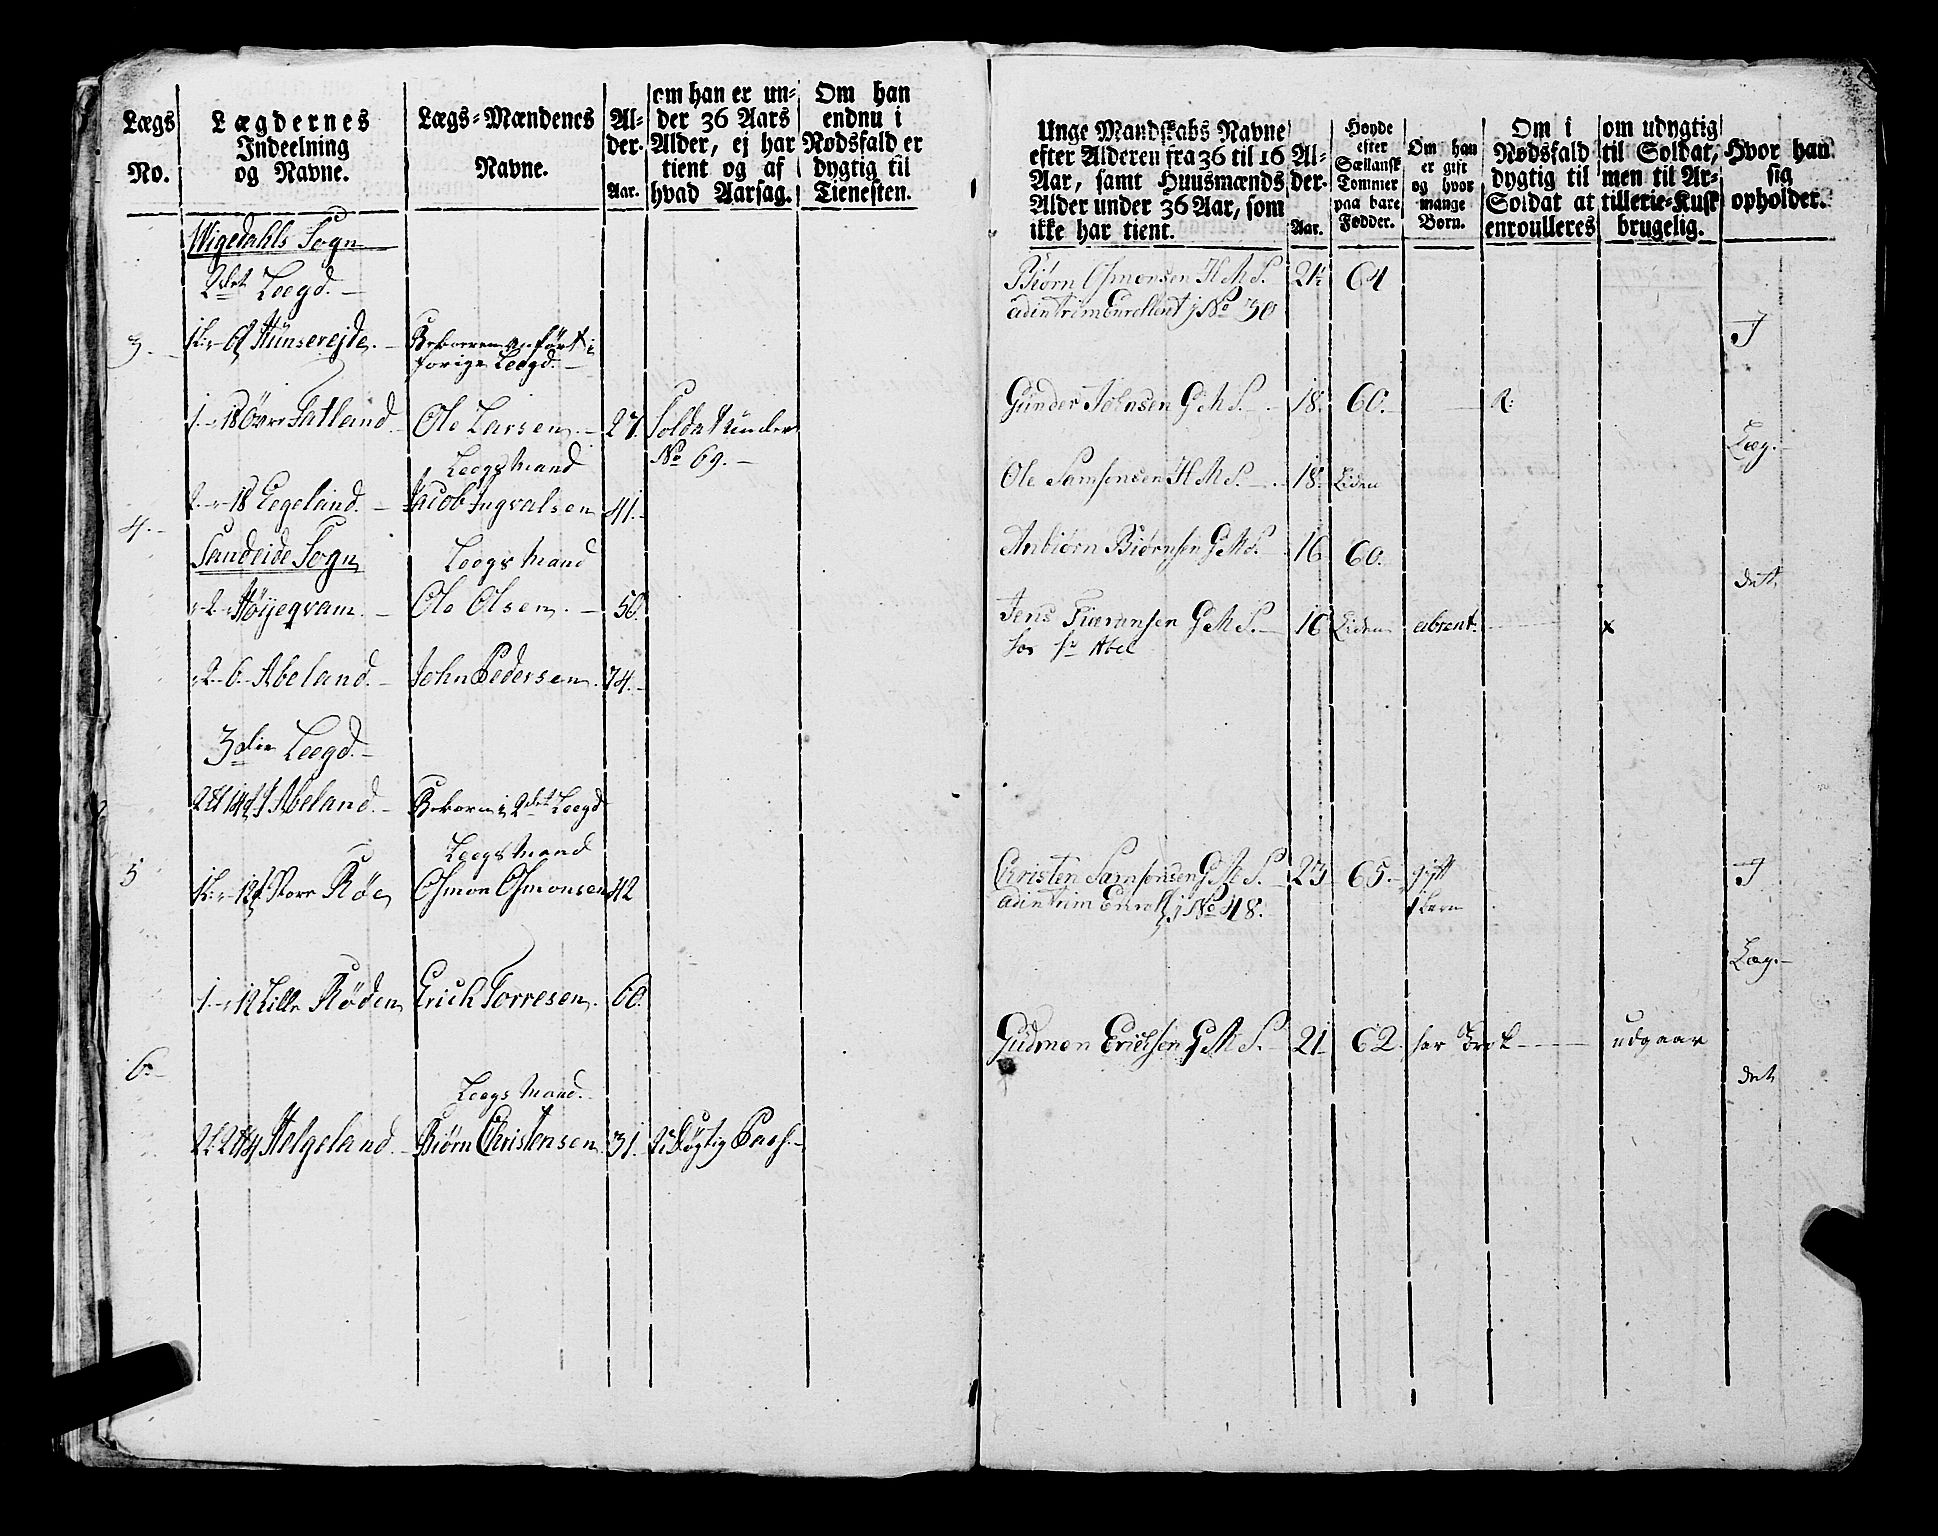 Lægs
No.
Lægdernes
Indeelning
og Navne.
Lægs-Mændenes
Navne.
Al-
der.
Aar.
om han er un-
der 36 Aars
Alder, ej har
tient og af
hvad Aarsag.
Om han
endnu i
Nødsfald er
dygtig til
Tienesten.
Wigedahls Sogn
2det Lægd.
3.
forige Lægd.
Øvre Fatland Ole Larsen 27. Soldat under
No 69.
Lægsmand
18 Eegeland. Jacob Ingvalsen 41.
4.
Sandeide Sogn
Lægsmand
Høyeqvam Ole Olsen. 50.
6 Abeland. John Pedersen. 74.
3die Lægd.
Abeland. 2det Lægd
Lægsmand
5
Store Røe Osmon Osmonsen 42
12 Lille Røden Erich Torresen. 60.
6
Lægsmand.
Helgeland. Biørn Christensen 31. Udygtig Pass.
Unge Mandskabs Navne
efter Alderen fra 36 til 16
Aar, samt Huusmænds
Alder under 36 Aar, som
ikke har tient.
Al-
der.
Aar.
Høyde
efter
Sællansk
Tommer
paa bare
Fødder.
Om han
er gift
og hvor
mange
Børn.
Om i
Nødsfald
dygtig til
Soldat at
enroulleres
om udygtig
til Soldat,
men til Ar-
tillerie-Kusk
brugelig.
Hvor han
sig
opholder.
Biørn Osmonsen H M S. 24 64
No 30
I
Gunder Johnsen G M S. 18. 60.
Læg.
Ole Samsonsen H M S. 18. Liden
Anbiørn Biørnsen G M S. 16 60.
det
Jens G M S. 16 Liden absent. x
Christen Samsonsen G M S. 23 65. gift
No 48. 1 barn
I
Læg.
Gudmon Erichsen G M S. 21 62. har Brok udgaar
det